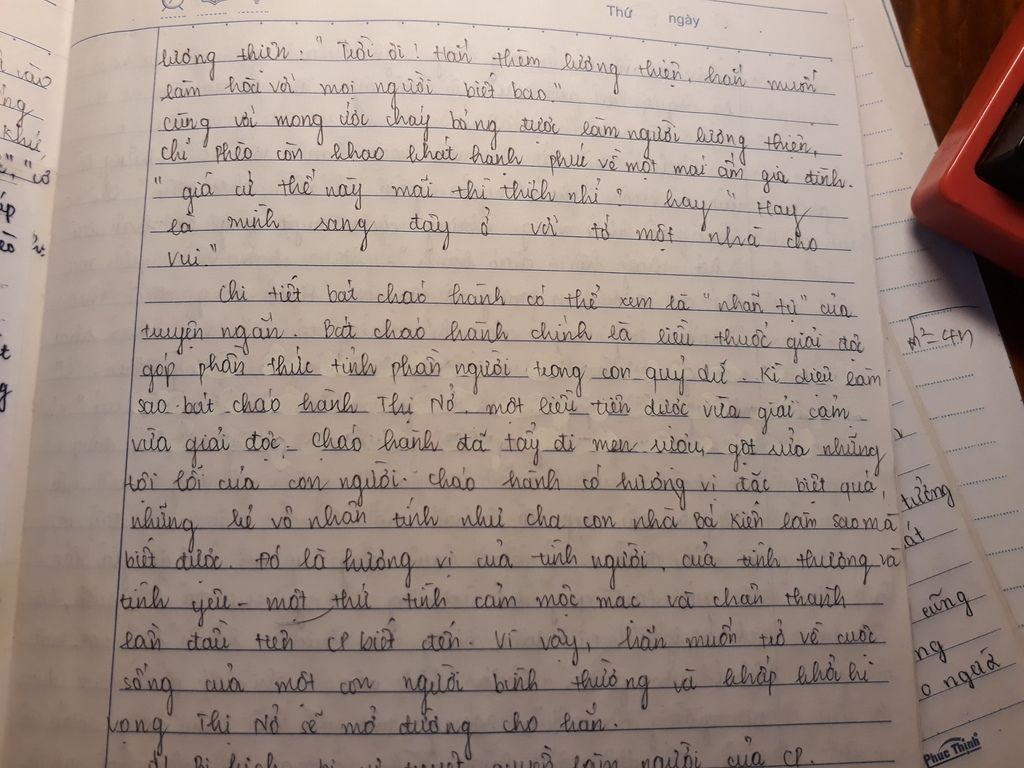 Thứ ngày
lương thiện: "Trời ơi! Hắn thèm lương thiện, hắn muốn
làm hòa với mọi người biết bao."
Cùng với mong ước cháy bỏng được làm người lương thiện,
Chí Phèo còn khao khát hạnh phúc về một mái ấm gia đình.
"giá cứ thế này mãi thì thích nhỉ? hay "Hay
là mình sang đây ở với tớ một nhà cho
vui."
Chi tiết bát cháo hành có thể xem là "nhãn tự" của
truyện ngắn. Bát cháo hành chính là liều thuốc giải độc
góp phần thức tỉnh phần người trong con quỷ dữ. Kì diệu làm
sao bát cháo hành Thị Nở. một liều tiên dược vừa giải cảm
vừa giải độc - cháo hành đã tẩy đi men rượu, gột rửa những
tội lỗi của con người. cháo hành có hương vị đặc biệt quá,
những kẻ vô nhân tính như cha con nhà Bá Kiến làm sao mà
biết được. Đó là hương vị của tình người, của tình thương và
tình yêu - một thứ tình cảm mộc mạc và chân thành
lần đầu tiên CP biết đến. Vì vậy, hắn muốn trở về cuộc
sống của một con người bình thường và khấp khởi hi
vọng Thị Nở sẽ mở đường cho hắn.
Bi kịch bị cự tuyệt quyền làm người của CP.
tưởng
cũng
Phúc Thịnh